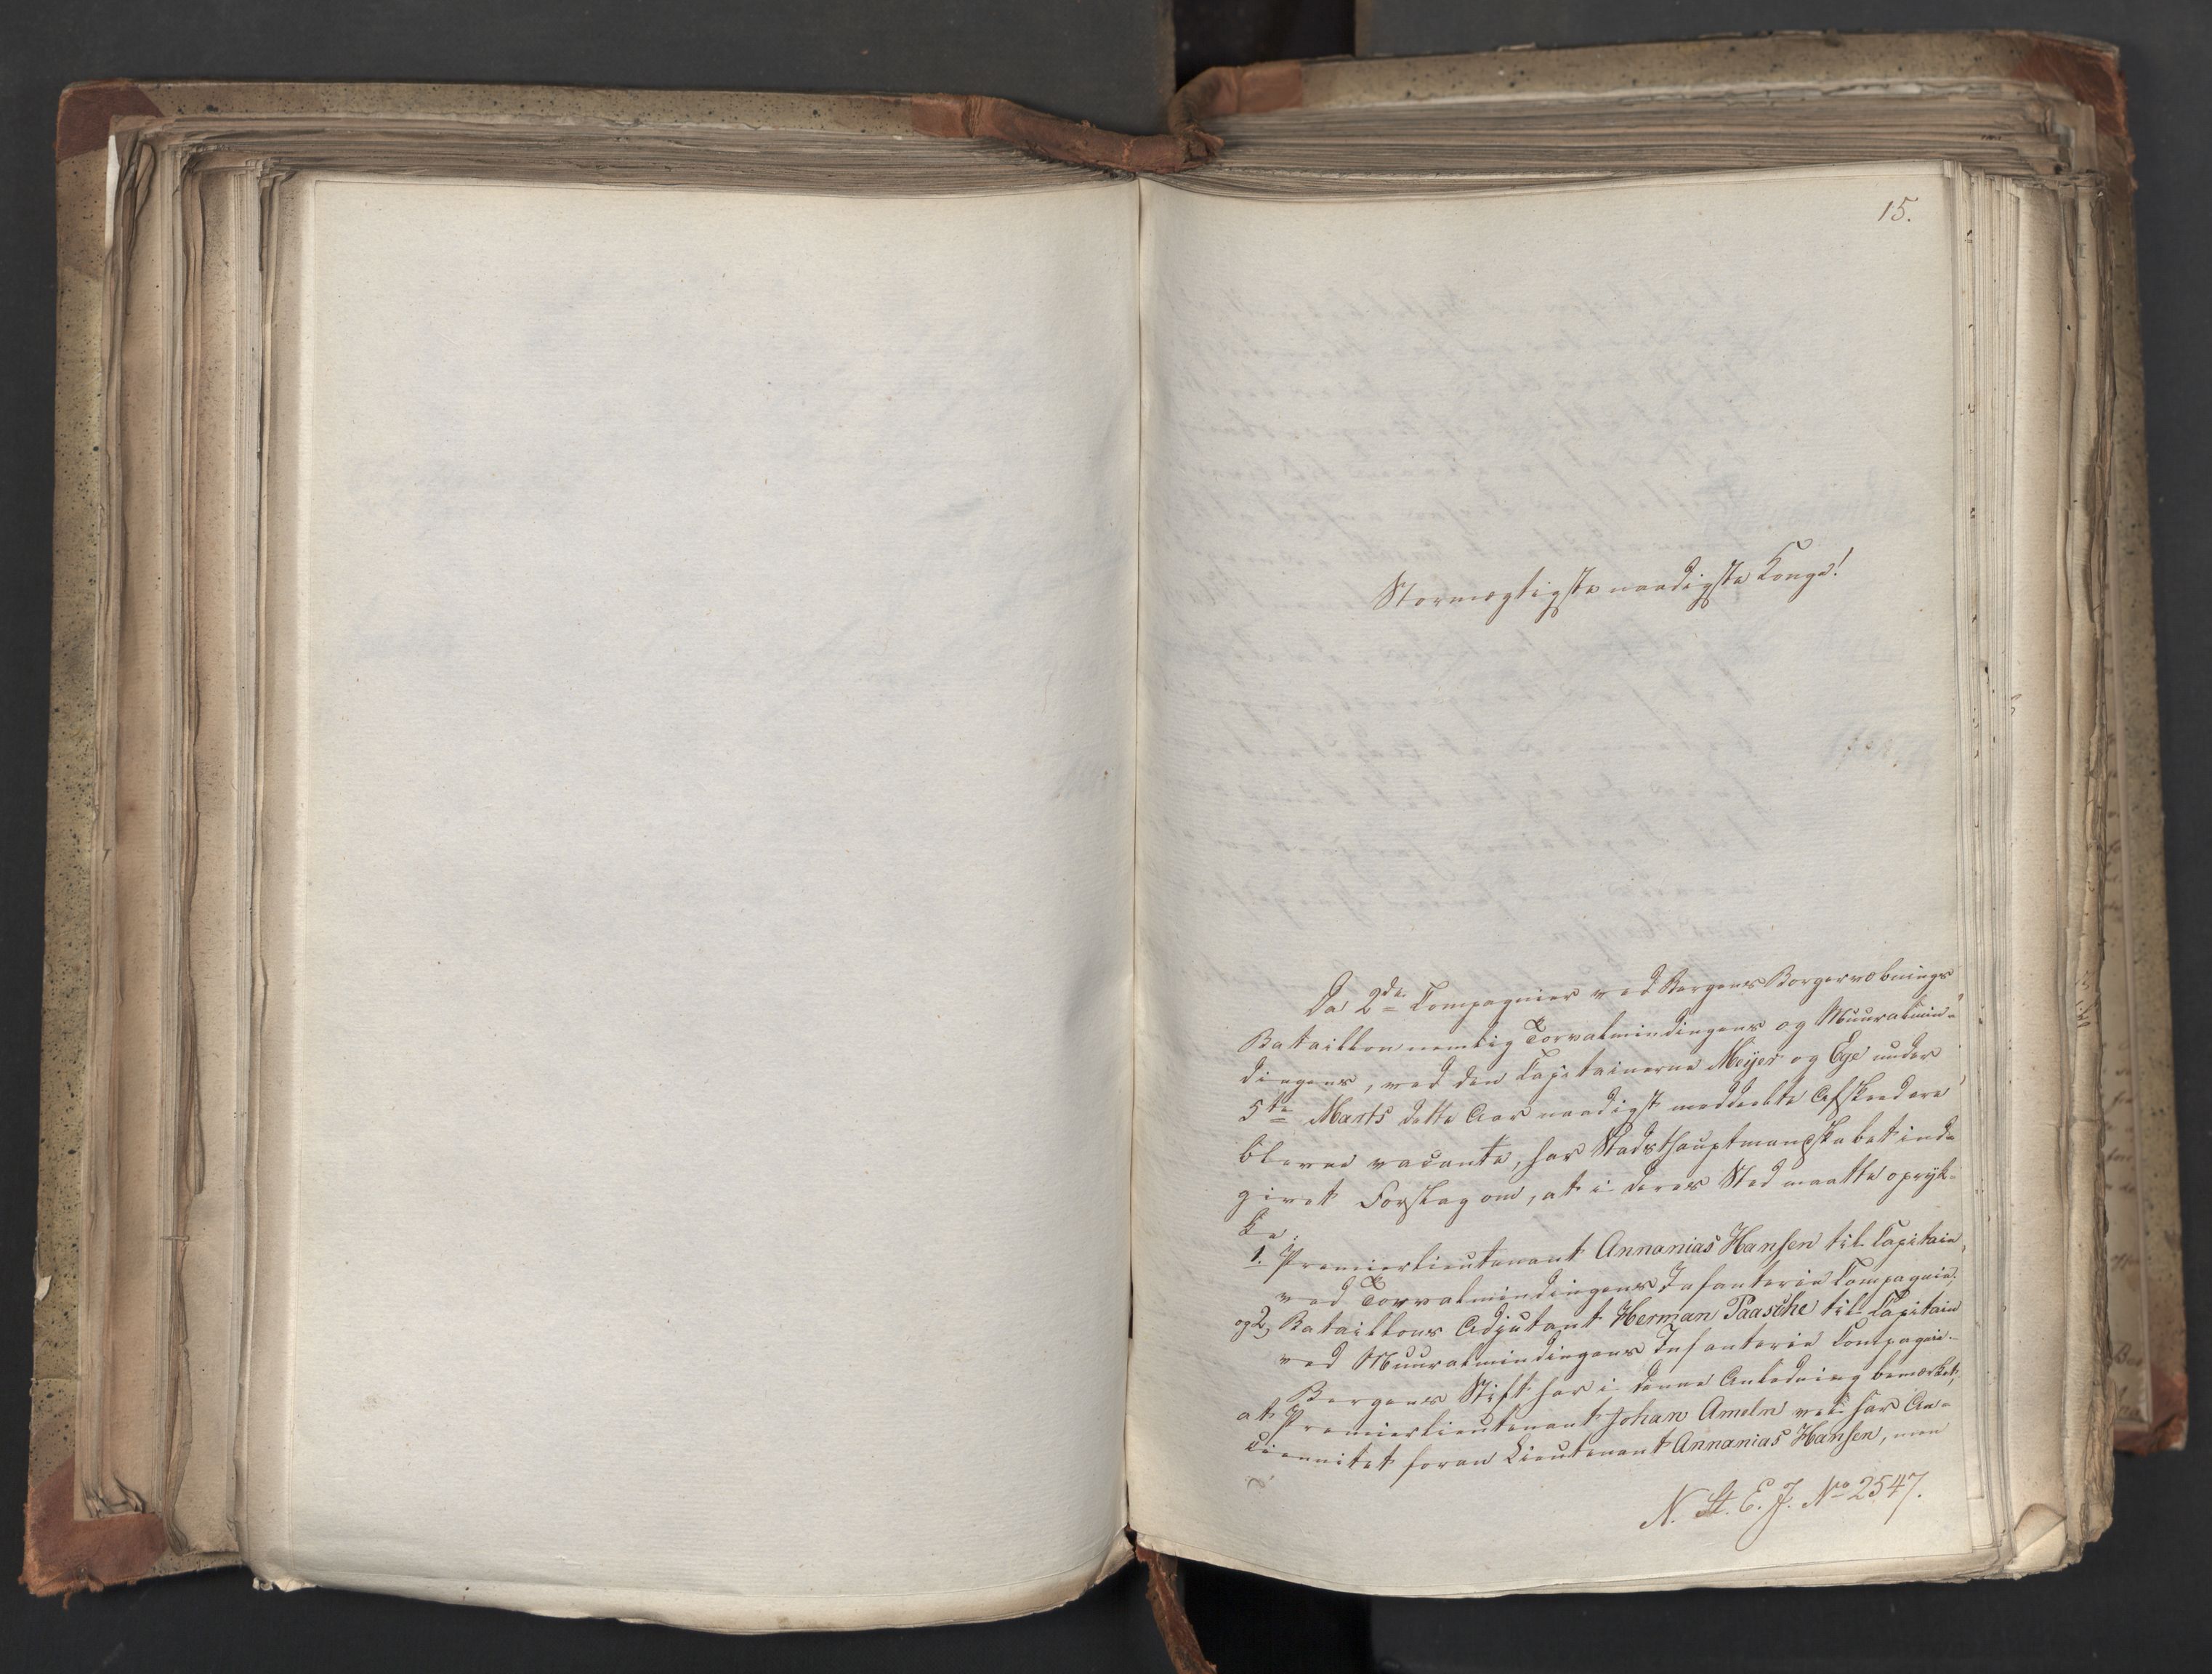 15.
Stormægtigste naadigste Konge!
Da 2de Compagnier ved Bergens Borgervæbnings
Bataillon nemlig Torvalmindingens og Muuralmin-
dingens, ved den Capitainerne Meÿer og Ege under
5te Marts dette Aar naadigst meddeelte Afskeed ere
blevne vacante, har Stadshauptmandskabet ind-
givet Forslag om, at i deres Sted maatte opryk-
ke:
1. Premierlieutenant Annanias Hansen til Capitain
ved Torvalmindingens Infanterie Compagnie.
og 2, Bataillons Adjutant Herman Paasche til Capitain
ved Muuralmindingens Infanterie Compagnie.
Bergens Stift har i denne Anledning bemærket,
at Premierlieutenant Johan Ameln vel har An-
ciennitet foran Lieutenant Annanias Hansen, men
N. St. E. J. No 2547.